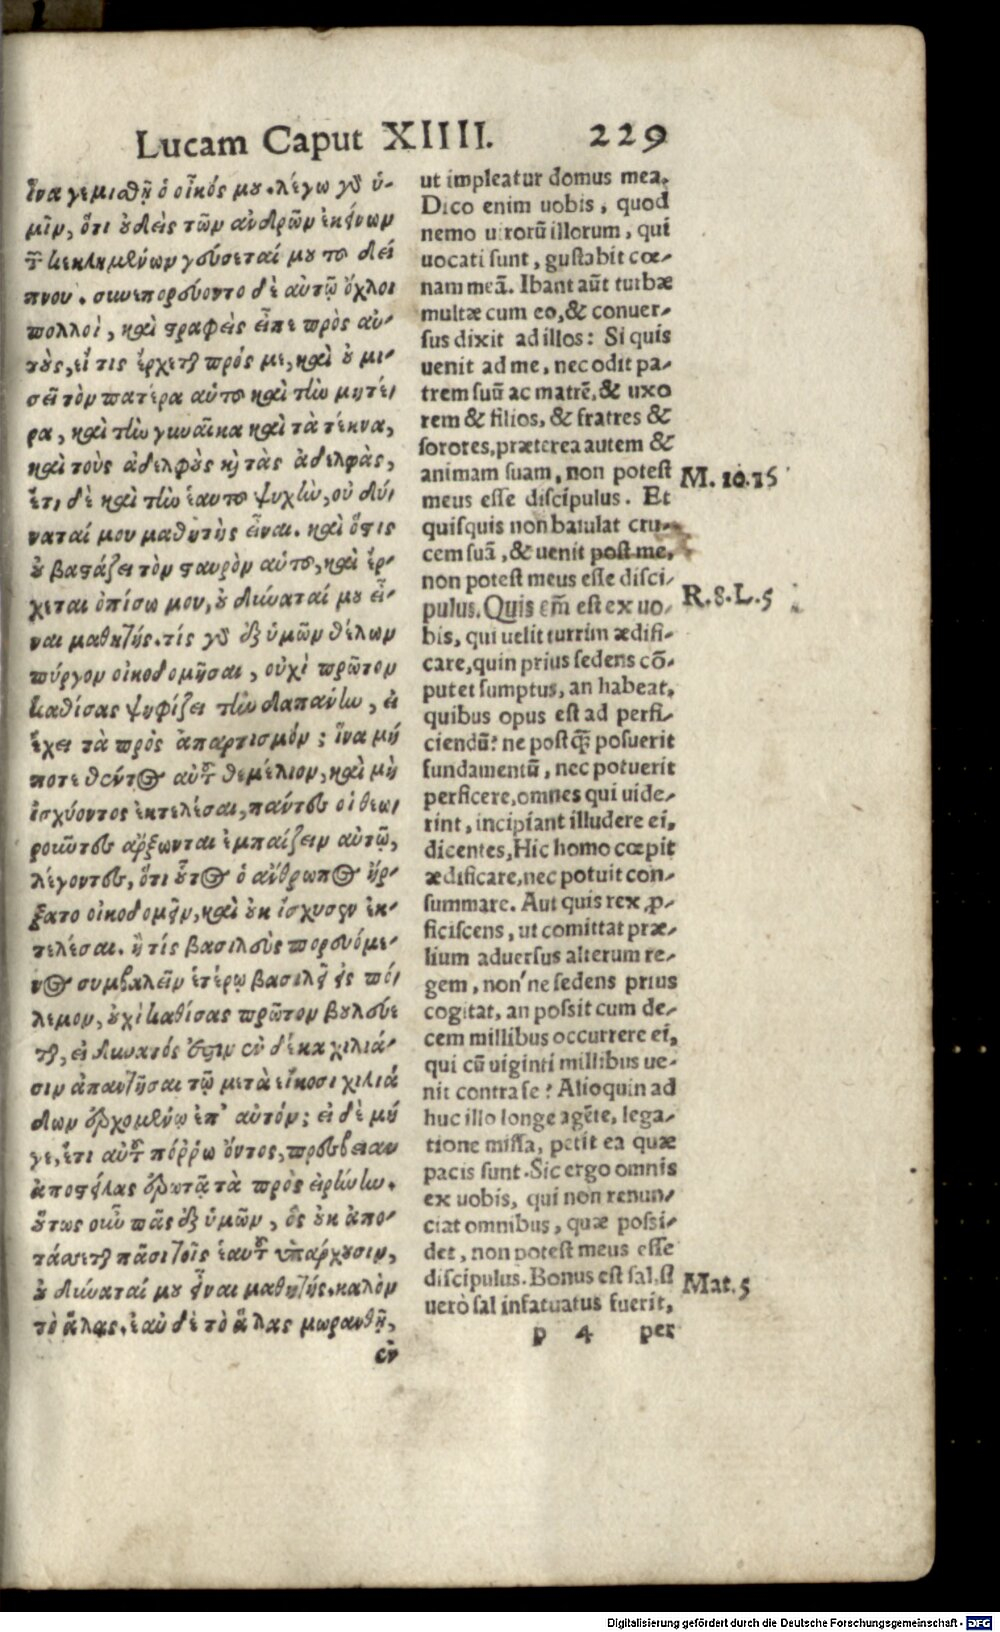 Lucam Caput XIIII. 229
ἵνα γεμισθῇ ὁ οἶκός μου. λέγω γὰρ ὑ-
μῖν, ὅτι οὐδεὶς τῶν ἀνδρῶν ἐκείνων
τῶν κεκλημένων γεύσεταί μου τοῦ δεί
πνου. συνεπορεύοντο δὲ αὐτῷ ὄχλοι
πολλοὶ, καὶ στραφεὶς εἶπε πρὸς αὐ-
τοὺς, εἴ τις ἔρχεται πρός με, καὶ οὐ μι-
σεῖ τὸν πατέρα αὑτοῦ καὶ τὴν μητέ-
ρα, καὶ τὴν γυναῖκα καὶ τὰ τέκνα,
καὶ τοὺς ἀδελφοὺς καὶ τὰς ἀδελφὰς,
ἔτι δὲ καὶ τὴν ἑαυτοῦ ψυχὴν, οὐ δύ-
ναταί μου μαθητὴς εἶναι. καὶ ὅστις
οὐ βαστάζει τὸν σταυρὸν αὑτοῦ, καὶ ἔρ-
χεται ὀπίσω μου, οὐ δύναταί μου εἶ-
ναι μαθητής. τίς γὰρ ἐξ ὑμῶν θέλων
πύργον οἰκοδομῆσαι, οὐχὶ πρῶτον
καθίσας ψηφίζει τὴν δαπάνην, εἰ
ἔχει τὰ πρὸς ἀπαρτισμόν; ἵνα μή
ποτε θέντος αὐτοῦ θεμέλιον, καὶ μὴ
ἰσχύοντος ἐκτελέσαι, πάντες οἱ θεω-
ροῦντες ἄρξωνται ἐμπαίζειν αὐτῷ,
λέγοντες, ὅτι οὗτος ὁ ἄνθρωπος ἤρ-
ξατο οἰκοδομεῖν, καὶ οὐκ ἴσχυσεν ἐκ-
τελέσαι. ἢ τίς βασιλεὺς πορευόμε-
νος συμβαλεῖν ἑτέρῳ βασιλεῖ εἰς πό-
λεμον, οὐχὶ καθίσας πρῶτον βουλεύε
ται, εἰ δυνατός ἐστιν ἐν δέκα χιλιά-
σιν ἀπαντῆσαι τῷ μετὰ εἴκοσι χιλιά
δων ἐρχομένῳ ἐπ' αὐτόν; εἰ δὲ μή
γε, ἔτι αὐτοῦ πόῤῥω ὄντος, πρεσβείαν
ἀποστείλας ἐρωτᾷ τὰ πρὸς εἰρήνην.
οὕτως οὖν πᾶς ἐξ ὑμῶν, ὃς οὐκ ἀπο-
τάσσεται πᾶσι τοῖς ἑαυτοῦ ὑπάρχουσιν,
οὐ δύναταί μου εἶναι μαθητής. καλὸν
τὸ ἅλας. ἐὰν δὲ τὸ ἅλας μωρανθῇ,
ἐν
ut impleatur domus mea.
Dico enim uobis, quod
nemo uirorũ illorum, qui
uocati sunt, gustabit cœ-
nam meã. Ibant aũt turbæ
multæ cum eo, & conuer-
sus dixit ad illos: Si quis
uenit ad me, nec odit pa-
trem suũ ac matrẽ, & uxo
rem & filios, & fratres &
sorores, præterea autem &
animam suam, non potest
meus esse discipulus. Et
quisquis non baiulat cru-
cem suã, & uenit post me,
non potest meus esse disci-
pulus. Quis em̃ est ex uo-
bis, qui uelit turrim ædifi-
care, quin prius sedens cõ-
putet sumptus, an habeat,
quibus opus est ad perfi-
ciendũ? ne post q̃ posuerit
fundamentũ, nec potuerit
perficere, omnes qui uide-
rint, incipiant illudere ei,
dicentes, Hic homo cœpit
ædificare, nec potuit con-
summare. Aut quis rex ꝓ-
ficiscens, ut comittat præ-
lium aduersus alterum re-
gem, non'ne sedens prius
cogitat, an possit cum de-
cem millibus occurrere ei,
qui cũ uiginti millibus ue-
nit contra se? Alioquin ad
huc illo longe agẽte, lega-
tione missa, petit ea quæ
pacis sunt. Sic ergo omnis
ex uobis, qui non renun-
ciat omnibus, quæ possi-
det, non potest meus esse
discipulus. Bonus est sal, si
uerò sal infatuatus fuerit,
p 4 per
M. 10.15
R.8.L.5
Mat.5
Digitalisierung gefördert durch die Deutsche Forschungsgemeinschaft - DFG